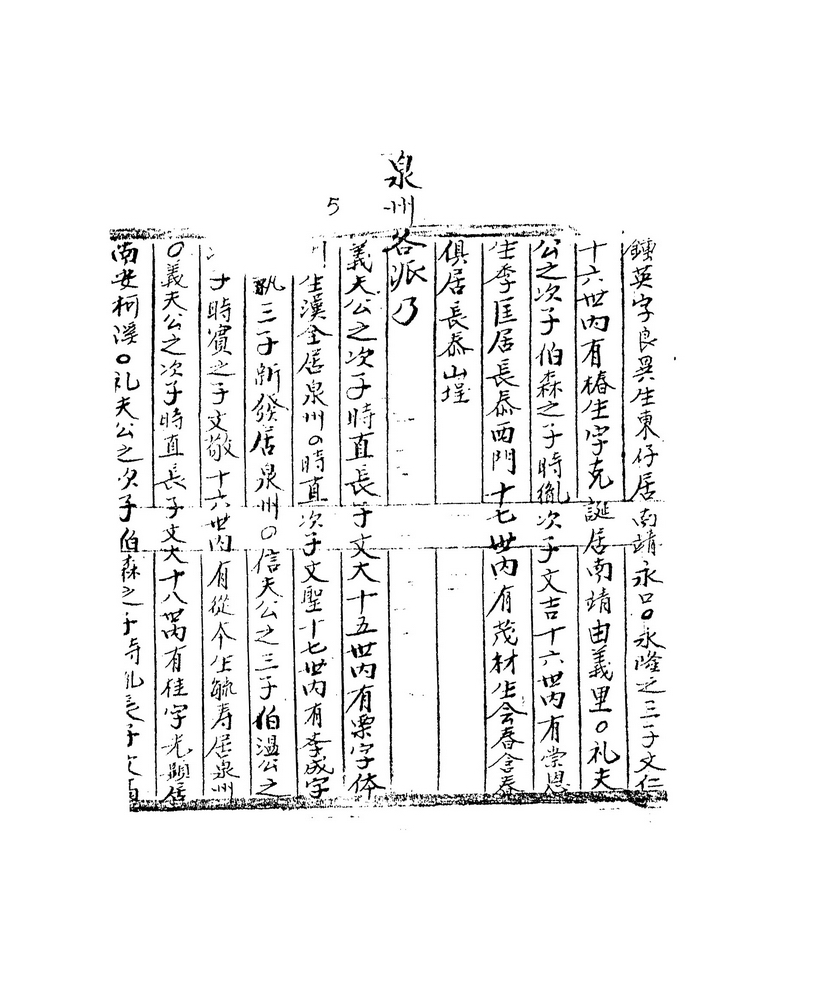 鍾英字良異生東仔居南靖永口〇永隆之三子文仁
十六世内有椿生字克誕居南靖由義里〇礼夫
公之次子伯森之子時亂次子文吉十六世内有崇恩
生季匡居長泰西門十七世内有茂材生會春含春
俱居長泰山埕
泉州各派乃
5
義夫公之次子時直長子文大十五世内有栗字体
生漢全居泉州〇時直次子文聖十七世内有季成字
三子新發居泉州〇信夫公之三子伯溫公之
子時賓之子文敬十六世内有從今生毓寿居泉州
〇義夫公之次子時直長子文大十八世内有佳字光顯居
南安柯溪〇礼夫公之次子伯森之子時亂長子文